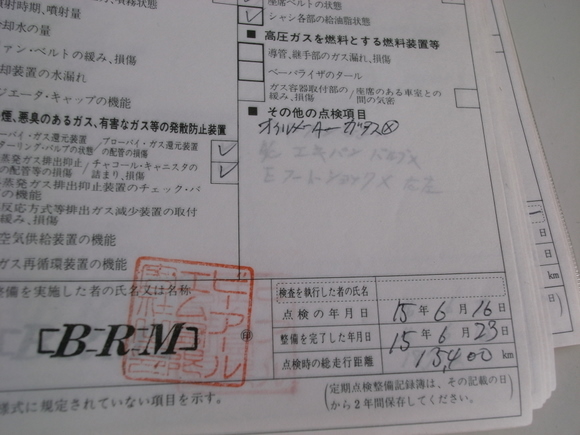 噴射時期、噴射量
冷却水の量
ファン・ベルトの緩み、損傷
冷却装置の水漏れ
ジエータ・キャップの機能
煙、悪臭のあるガス、有害なガス等の発散防止装置
ローバイ・ガス還元装置
ターリング・バルブの状態
ブローバイ・ガス還元装置
の配管の損傷
蒸発ガス排出抑止
の配管等の損傷
チャコール・キャニスタの
詰まり、損傷
蒸発ガス排出抑止装置のチェック・バ
反応方式等排出ガス減少装置の取付
緩み、損傷
空気供給装置の機能
ガス再循環装置の機能
整備を実施した者の氏名又は名称
[B-R-M]
印
様式に規定されていない項目を示す。
座席ベルトの状態
シャシ各部の給油脂状態
■ 高圧ガスを燃料とする燃料装置等
導管、継手部のガス漏れ、損傷
ベーパライザのタール
ガス容器取付部の
緩み、損傷
座席のある車室との
間の気密
■ その他の点検項目
検査を執行した者の氏名
点検の年月日 15年 6月 16日
整備を完了した年月日 15年 6月 23日
点検時の総走行距離 13,400 km
(定期点検整備記録簿は、その記載の日
から2年間保存してください。)
日
日
km